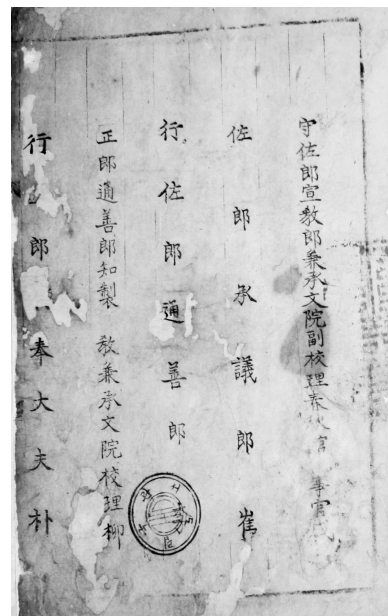 守佐郎宣教郎兼承文院副校理春秋館 事官
佐郎承議郎崔
行佐郎通善郎
正郎通善郎知製 教兼承文院校理柳
行 郎 奉大夫朴